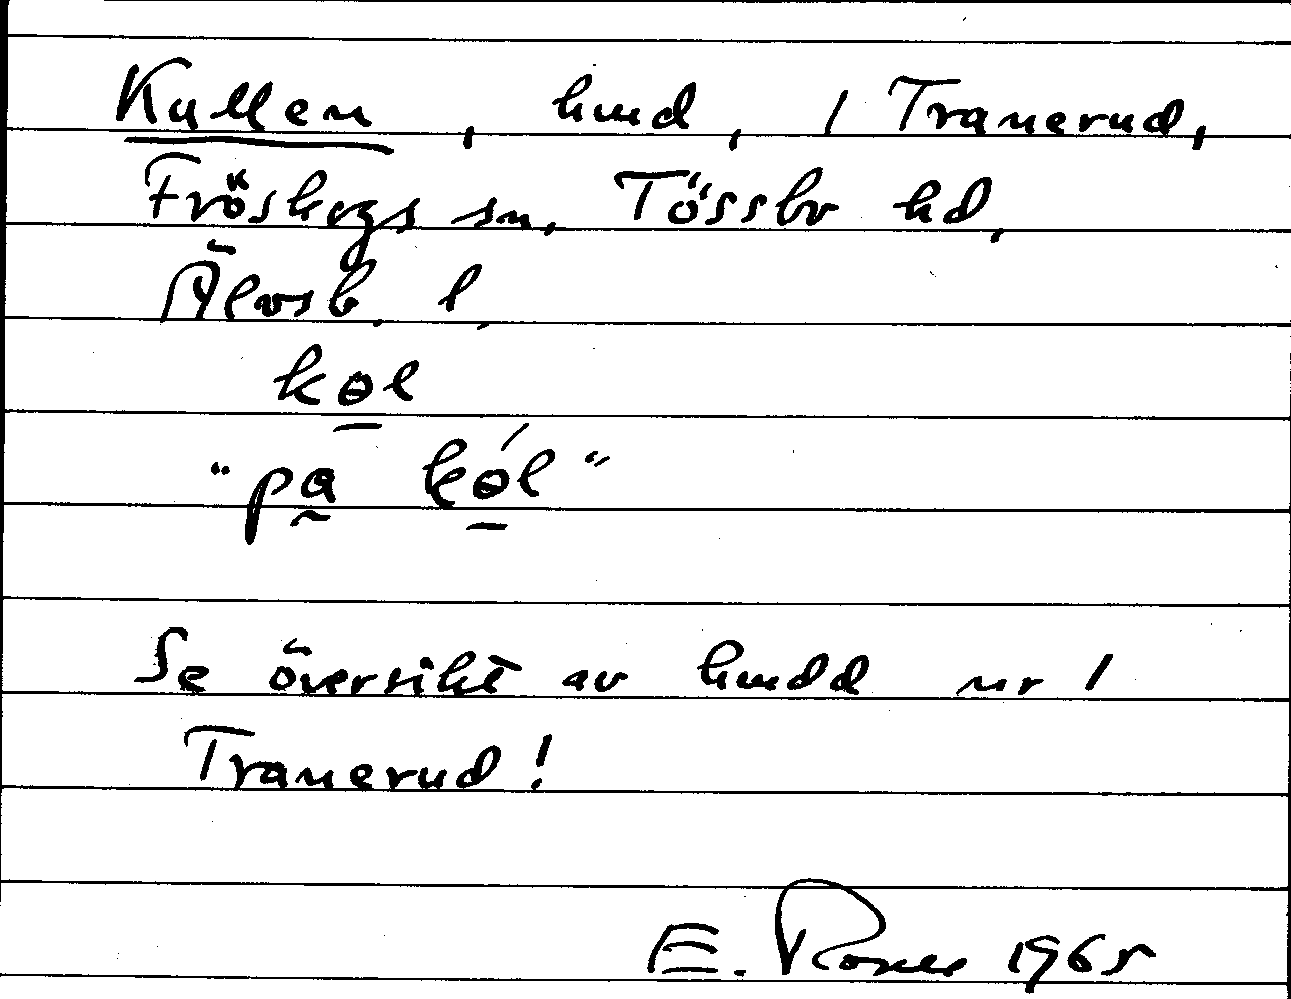 Kullen, hmd, 1 Tranerud,
Fröskogs sn, Tössbo hd,
Älvsb. l.
kɵl
"pa kɵ́l"
Se översikt av hmdd nr 1
Tranerud!
E. 1965